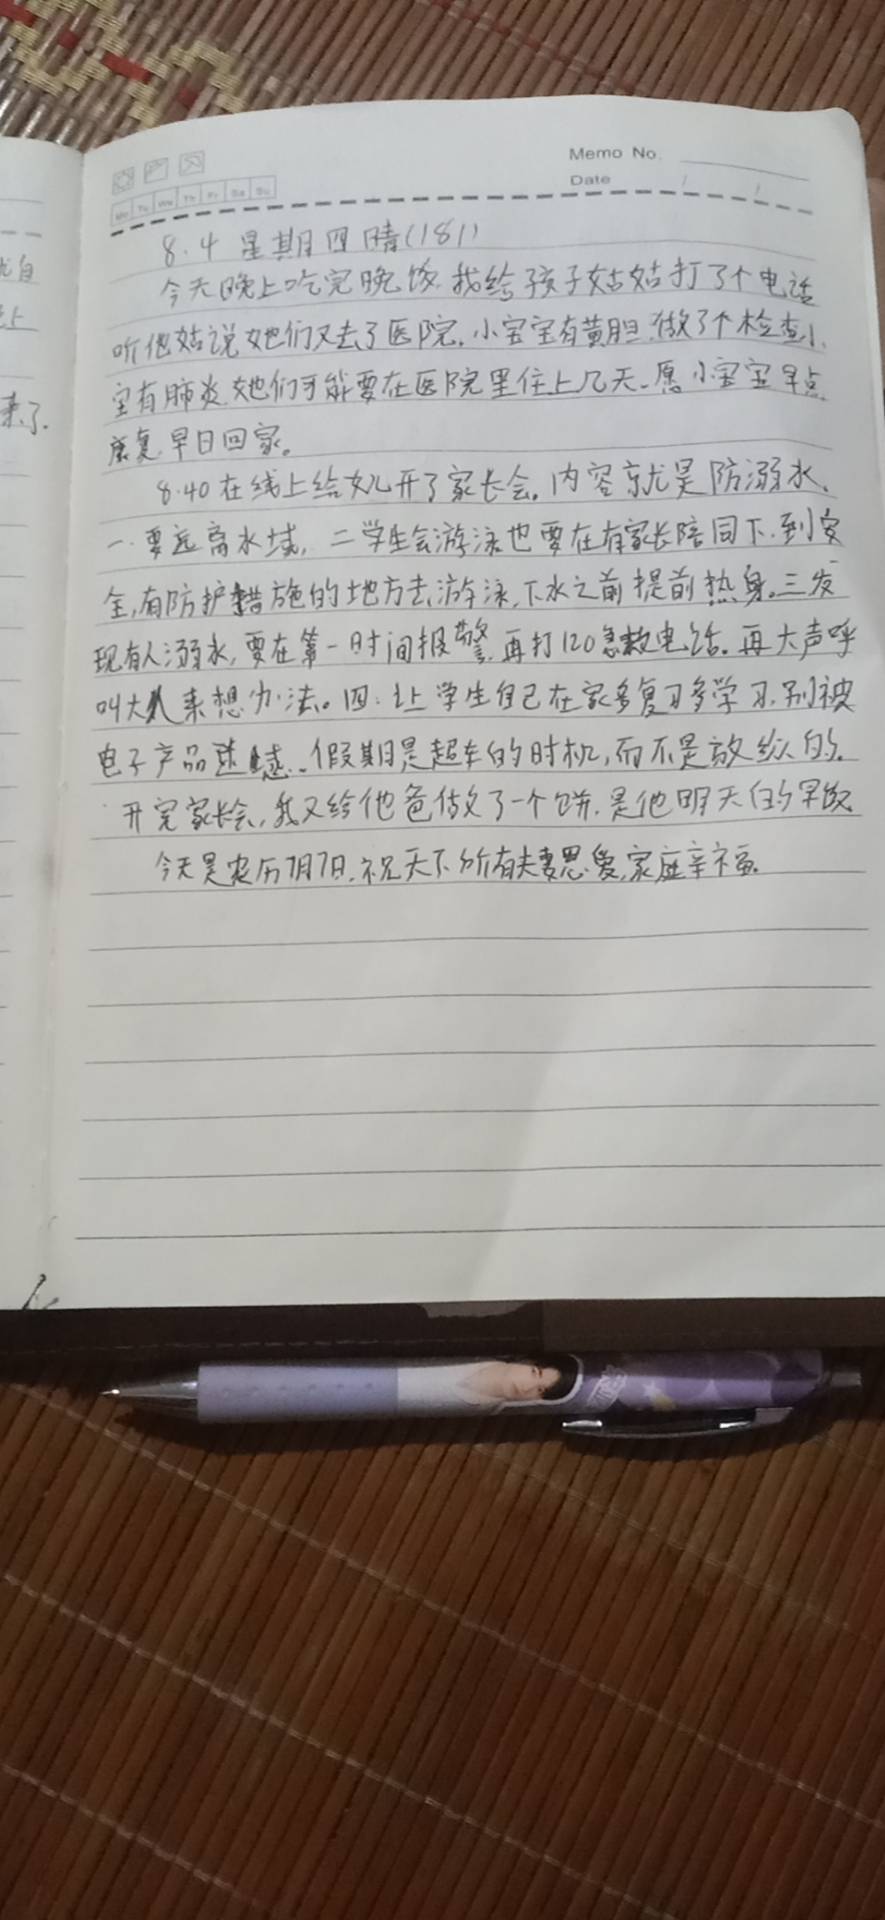 Memo No.
Date / /
Mo Tu We Th Fr Sa Su
8.4 星期四 晴(181)
今天晚上吃完晚饭.我给孩子姑姑打了个电话
听他姑说她们又去了医院.小宝宝有黄胆.做了个检查小
宝有肺炎.她们可能要在医院里住上几天.愿小宝宝早点
康复.早日回家。
8.40在线上给女儿开了家长会.内容就是防溺水.
一.要远离水域,二学生会游泳也要在有家长陪同下.到安
全,有防护措施的地方去游泳.下水之前提前热身.三发
现有人溺水,要在第一时间报警.再打120急救电话.再大声呼
叫大人来想办法。四:让学生自己在家多复习多学习.别被
电子产品迷惑..假期是超车的时机,而不是放纵的.
开完家长会,我又给他爸做了一个饼.是他明天的早饭
今天是农历7月7日.祝天下所有夫妻恩爱,家庭幸福.
来了.